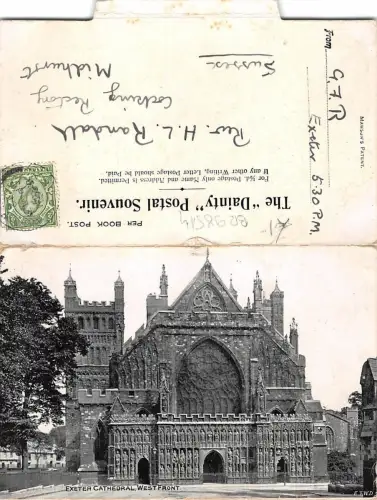 PER BOOK POST.
The "Dainty" Postal Souvenir.
For ½d. Postage only Name and Address is Permitted.
If any other Writing, Letter Postage should be Paid.
Rev. H. L. Randall
Cocking Rectory
Midhurst
Sussex
From
G.F.R
Exeter 5.30 P.M.
MANSON'S PATENT.
EXETER CATHEDRAL, WEST FRONT